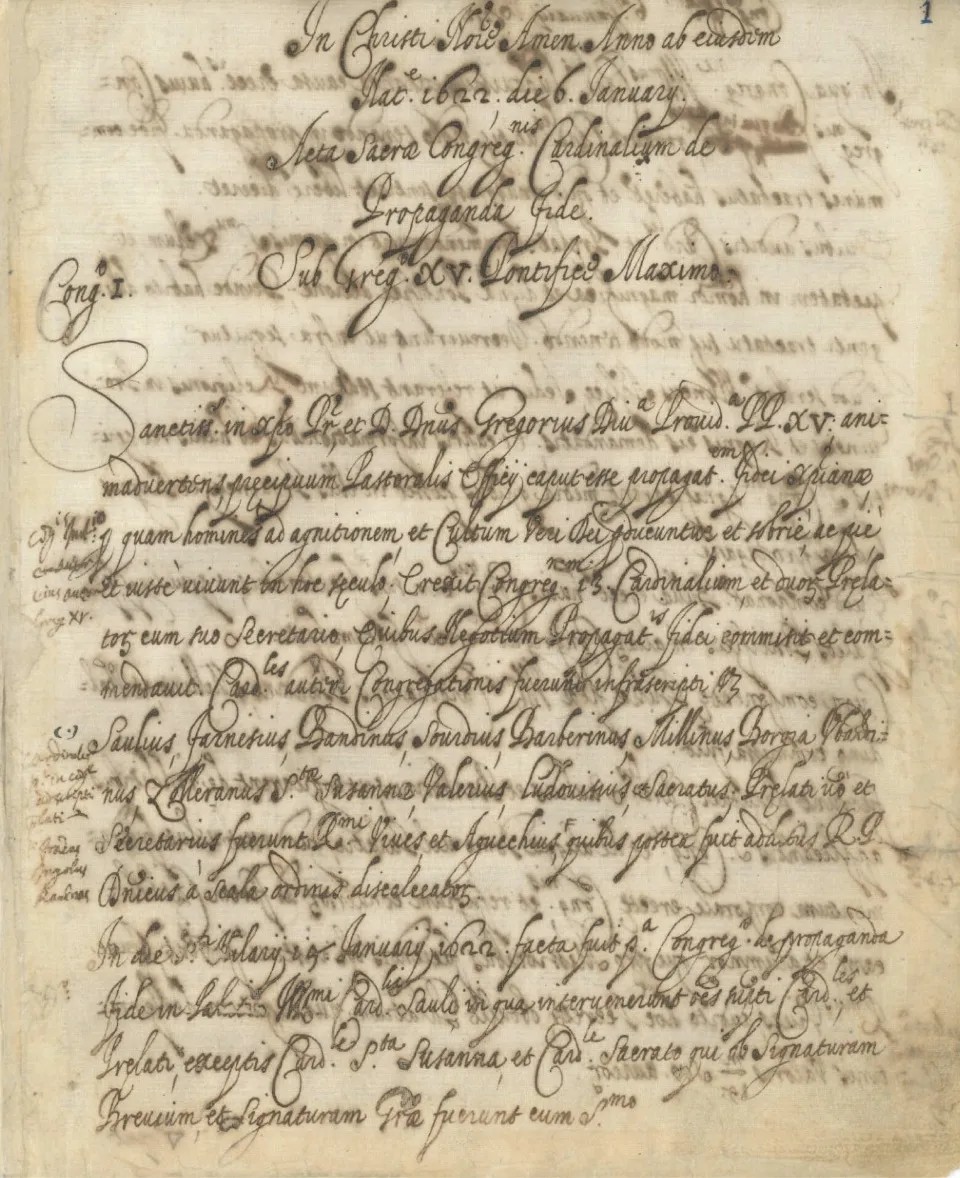 1
In Christi Noie Amen. Anno ab eiusdem
Nat.e 1622. die 6. January.
Acta Sacræ Congreg.nis Cardinalium de
Propaganda fide.
Sub Greg.o XV. Pontifice Maximo.
Cong.o 1.
Sanctiss. in Xpo Pr. et D. Dnus Gregorius Diu.a Prouid.a PP. XV. ani=
maduertens precipuum Pastoralis Officij caput esse propagat.em fidei Xpianæ
quam homines ad agnitionem, et Cultum Veri Dei adducuntur et sobriè ac piè
et iustè viuunt in hoc seculo; Erexit Congreg.nem 13. Cardinalium et duoꝝ Prela=
toꝝ cum suo Secretario, Quibus Negotium Propagat.is fidei commisit et com=
mendauit. Card.les autem Congregationis fuerunt infrascripti Vz
Saulius, Farnesius, Bandinus, Sourdius, Barberinus, Millinus, Borgia, Vbaldi=
nus, Zolleranus, S.tæ Susannæ, Valerius, Ludouisius, Sacratus. Prelati uo et
Secretarius fuerunt R.mi Viues et Aguechius, quibus postea fuit additus R. P.
Dnicus à Scala ordinis discalceatoꝝ
In die S.ti Hilarij 14. January 1622. facta fuit p.a Congreg.o de propaganda
fide in Palatio Ill.mi Card.lis Sauli in qua interuenerunt oes supti Card.les et
Prelati, exceptis Card.le S.ta Susanna, et Card.le Sacrato qui ob Signaturam
Breuium, et Signaturam Græ fuerunt cum S.mo